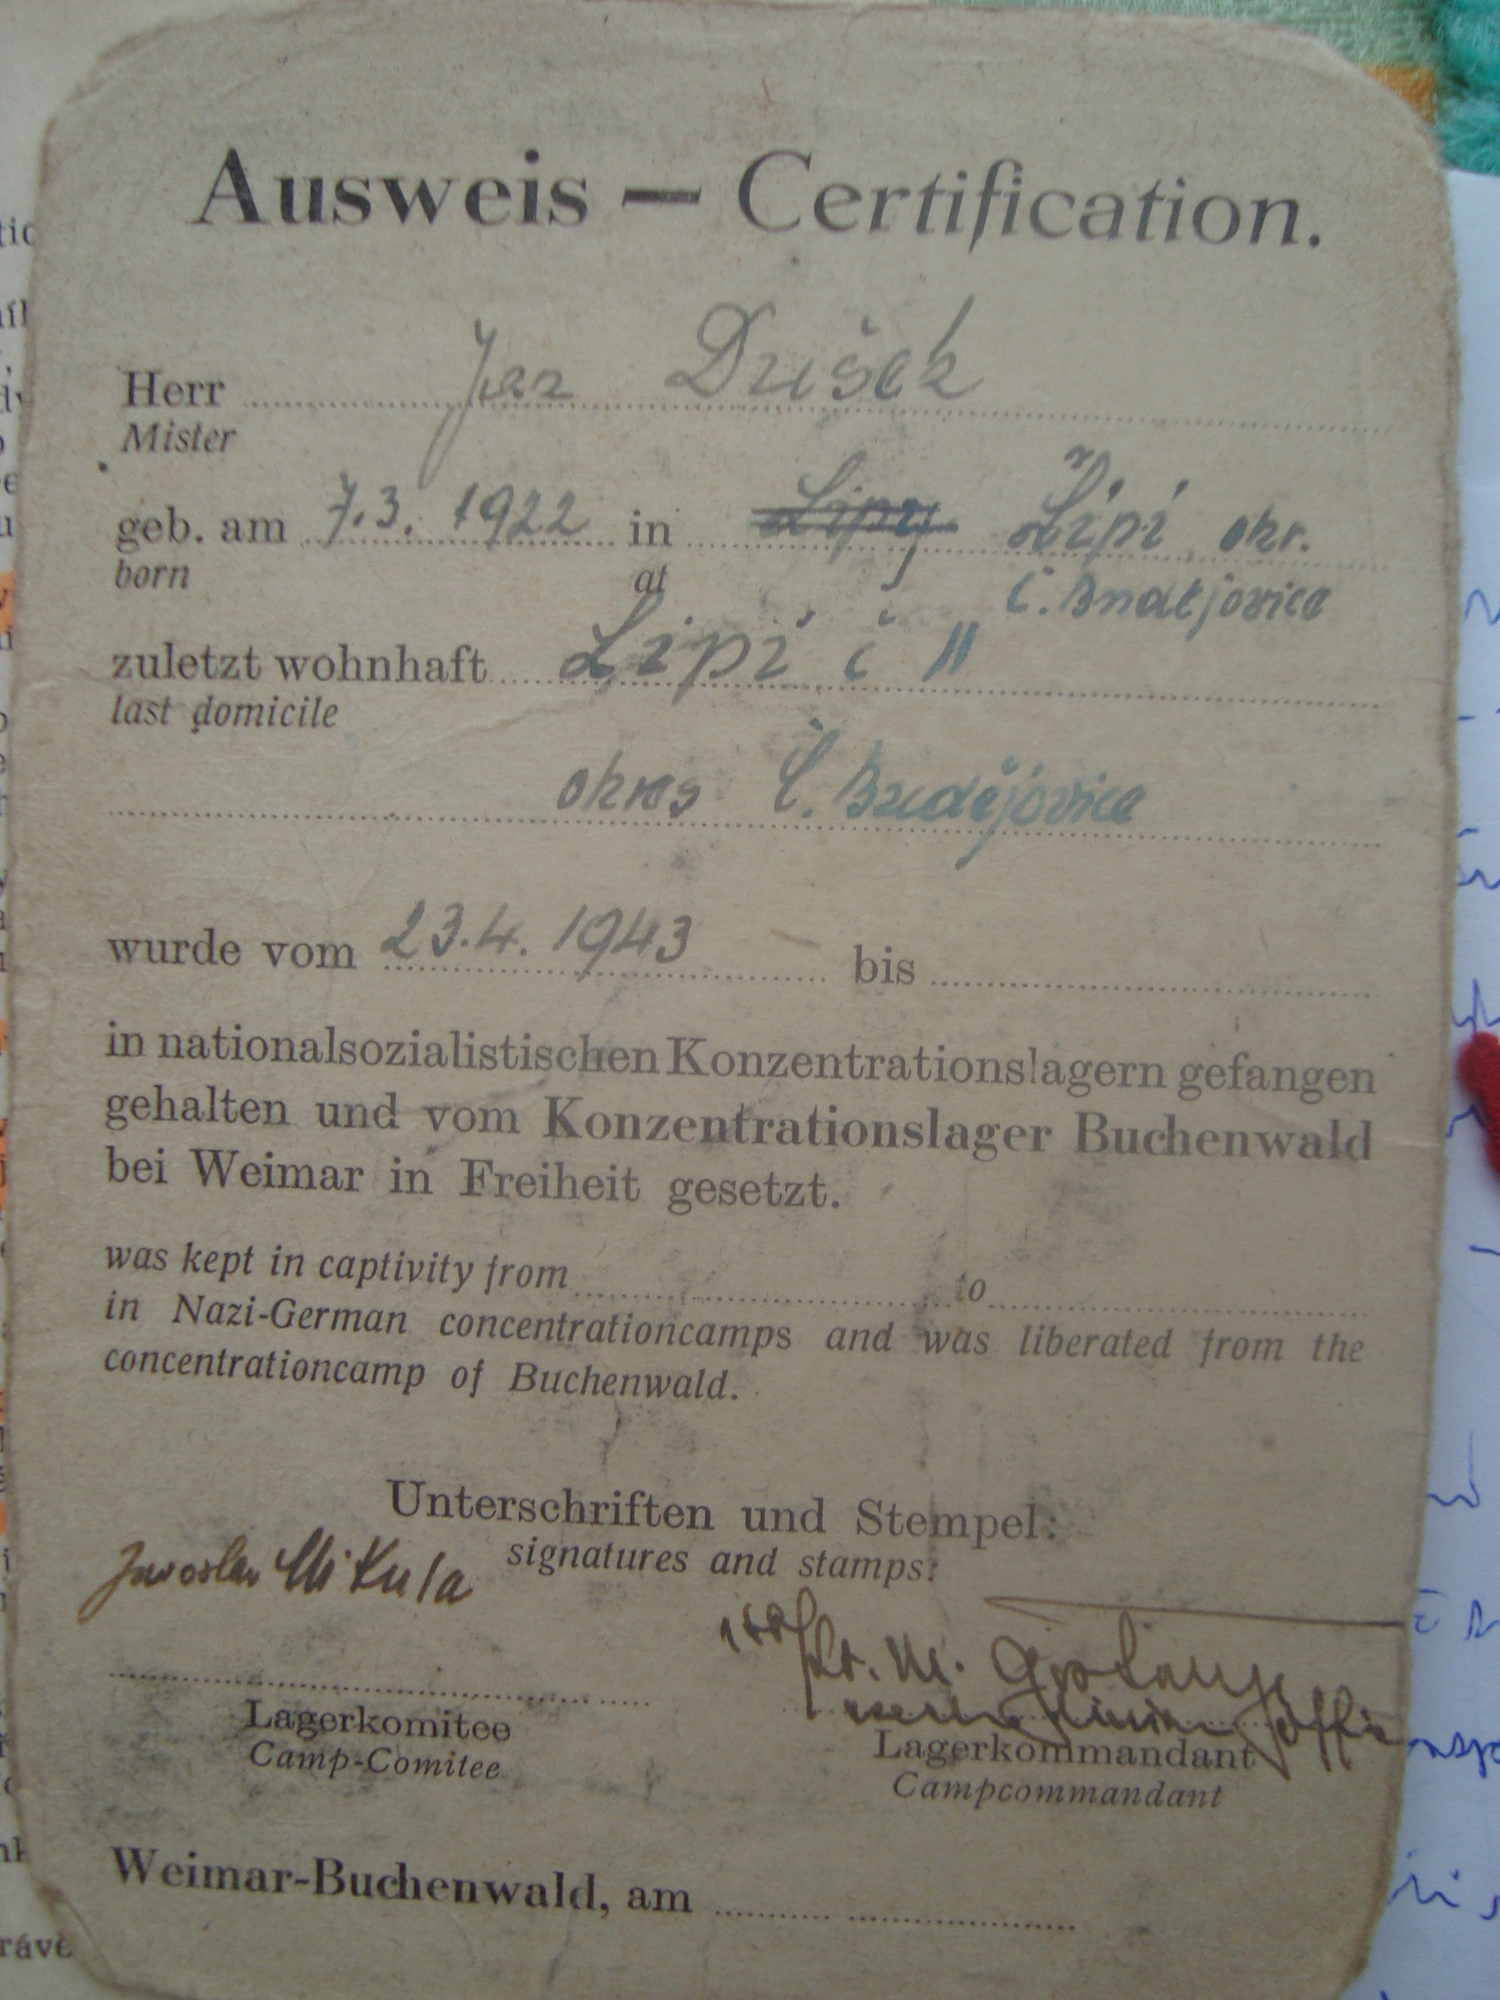 Ausweis — Certification.
Herr Jan Dušek
Mister
geb. am 7.3. 1922 in Lipy Lipí okr.
born at Č. Budějovice
zuletzt wohnhaft Lipí č 11
last domicile
okres Č. Budějovice
wurde vom 23.4. 1943 bis
in nationalsozialistischen Konzentrationslagern gefangen
gehalten und vom Konzentrationslager Buchenwald
bei Weimar in Freiheit gesetzt.
was kept in captivity from to
in Nazi-German concentrationcamps and was liberated from the
concentrationcamp of Buchenwald.
Unterschriften und Stempel:
signatures and stamps:
Jaroslav Mikula
Lt. M.
Lagerkomitee
Camp-Comitee
Lagerkommandant
Campcommandant
Weimar-Buchenwald, am